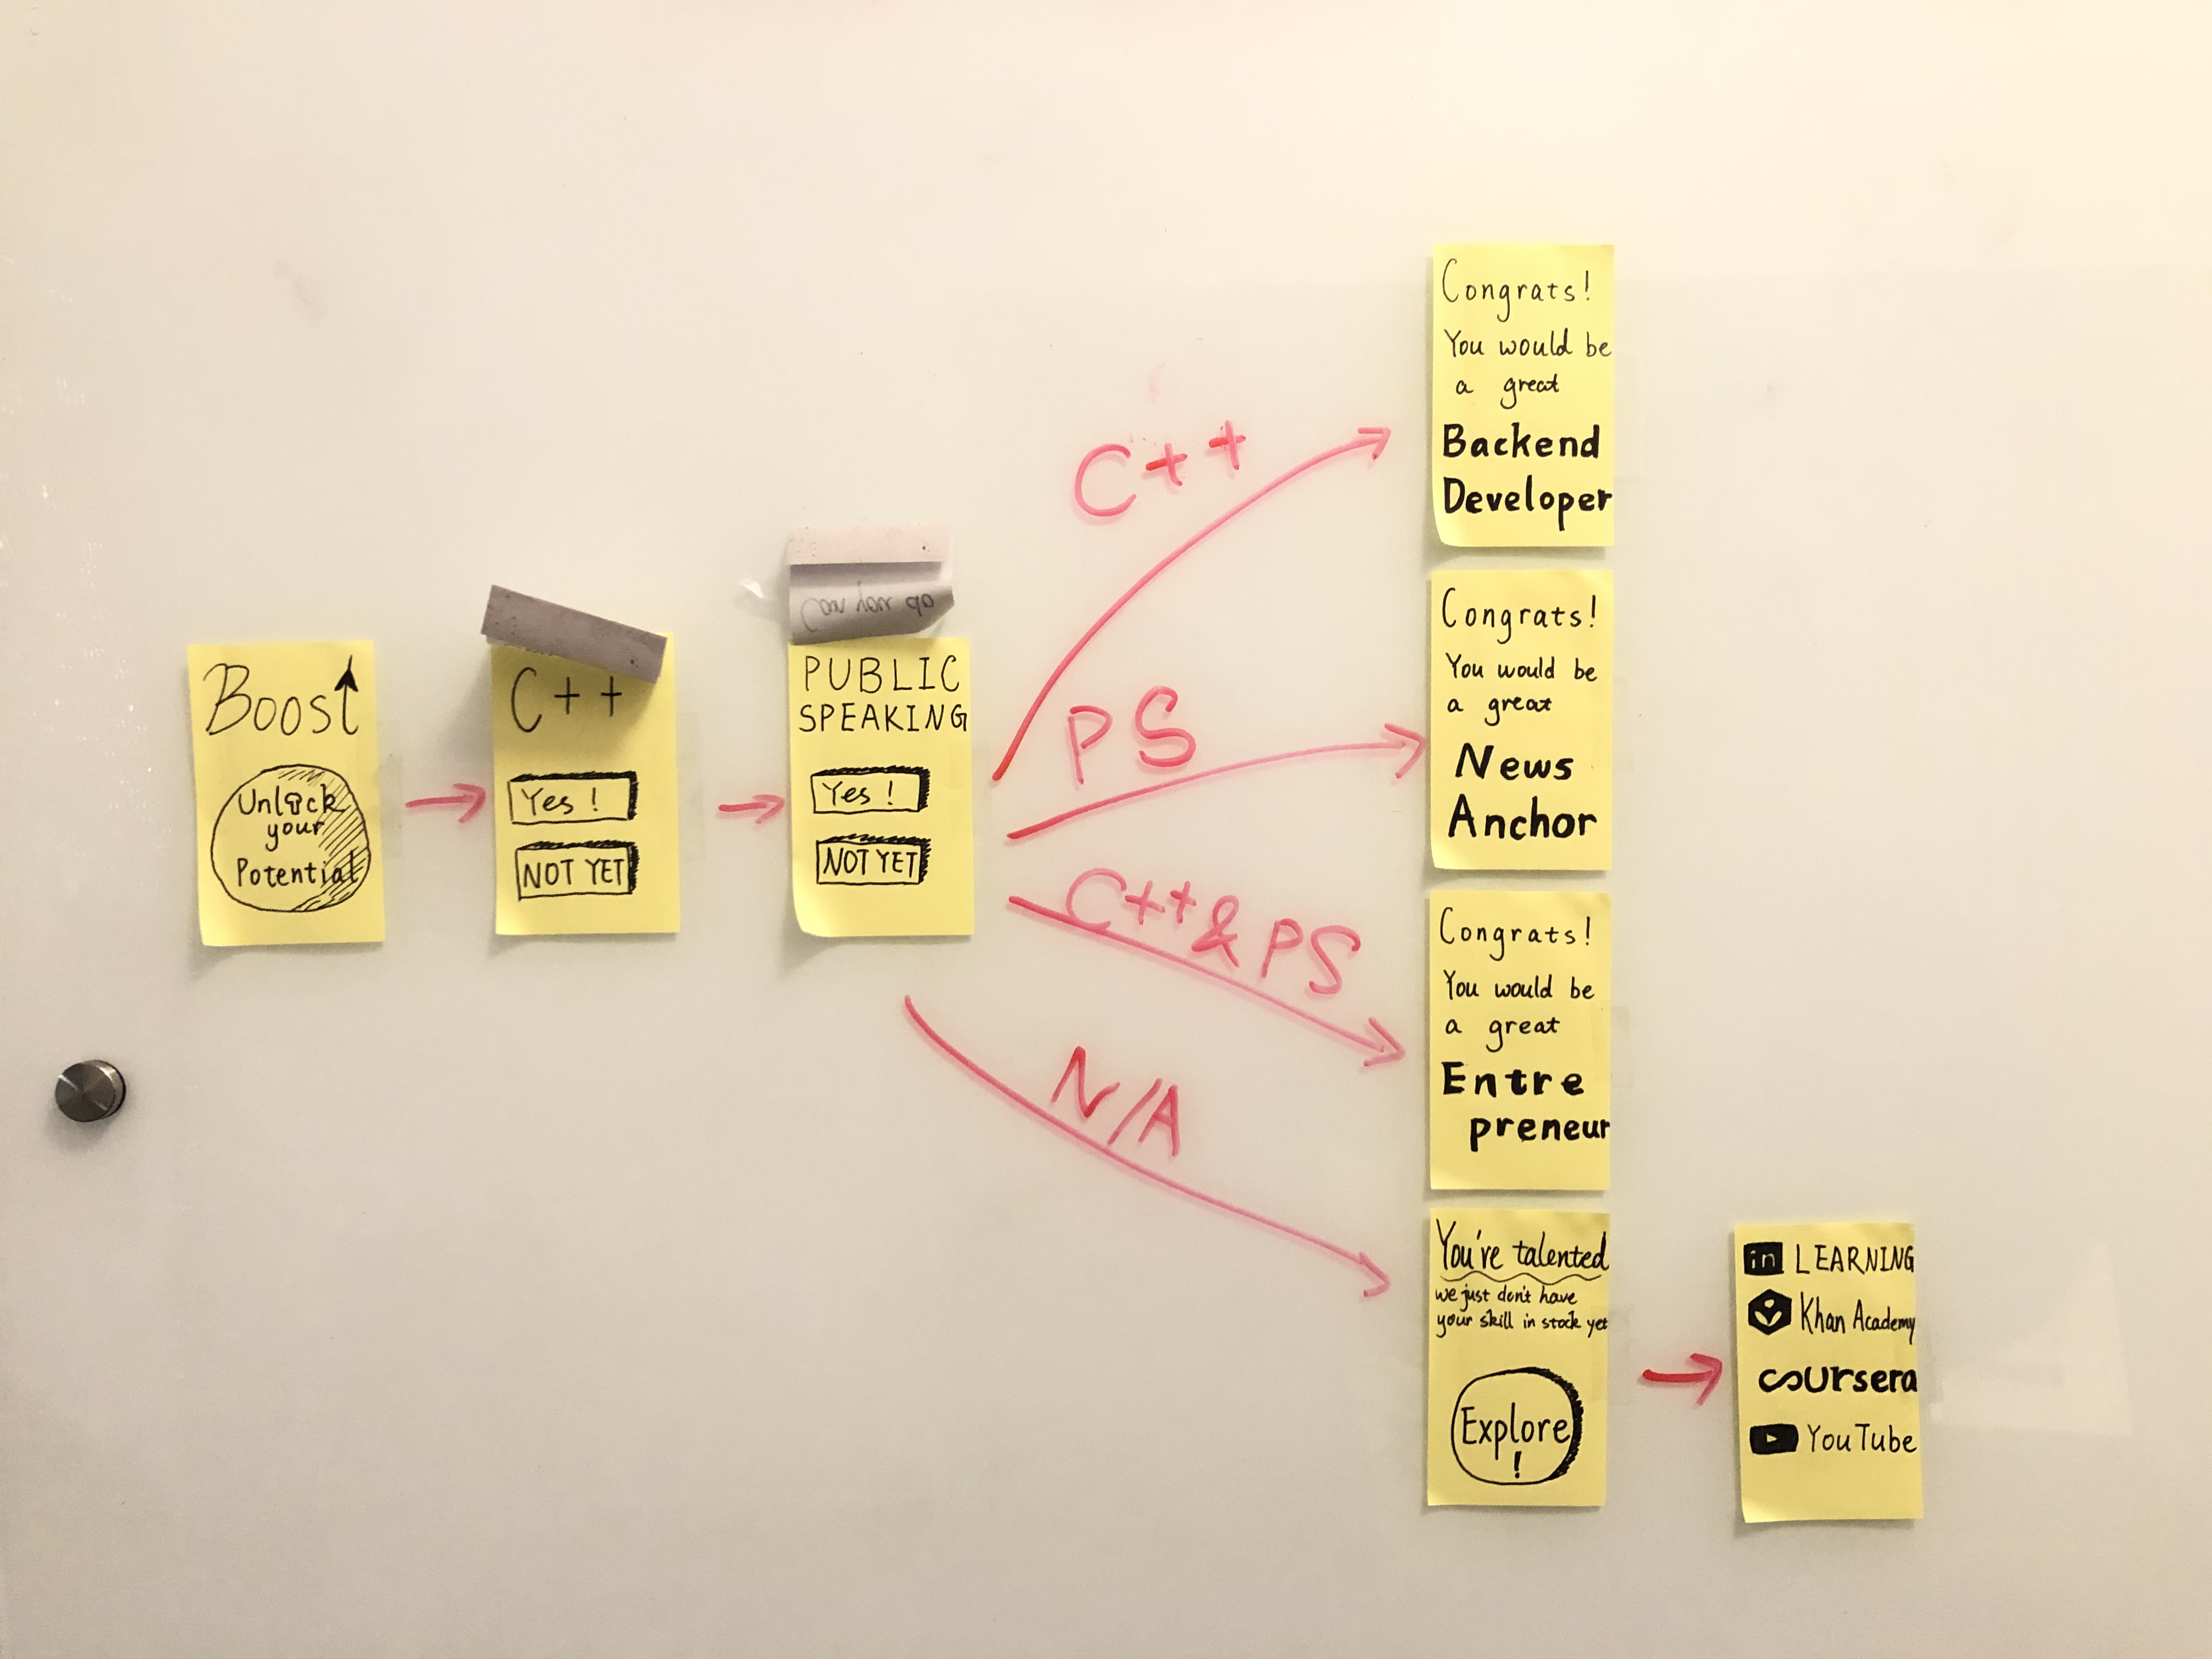 Boost
Unlock
your
Potential
C++
Yes!
NOT YET
Can you do
PUBLIC
SPEAKING
Yes!
NOT YET
C++
PS
C++ & PS
N/A
Congrats!
You would be
a great
Backend
Developer
Congrats!
You would be
a great
News
Anchor
Congrats!
You would be
a great
Entre
preneur
You're talented
we just don't have
your skill in stock yet
Explore
!
in LEARNING
Khan Academy
coursera
YouTube